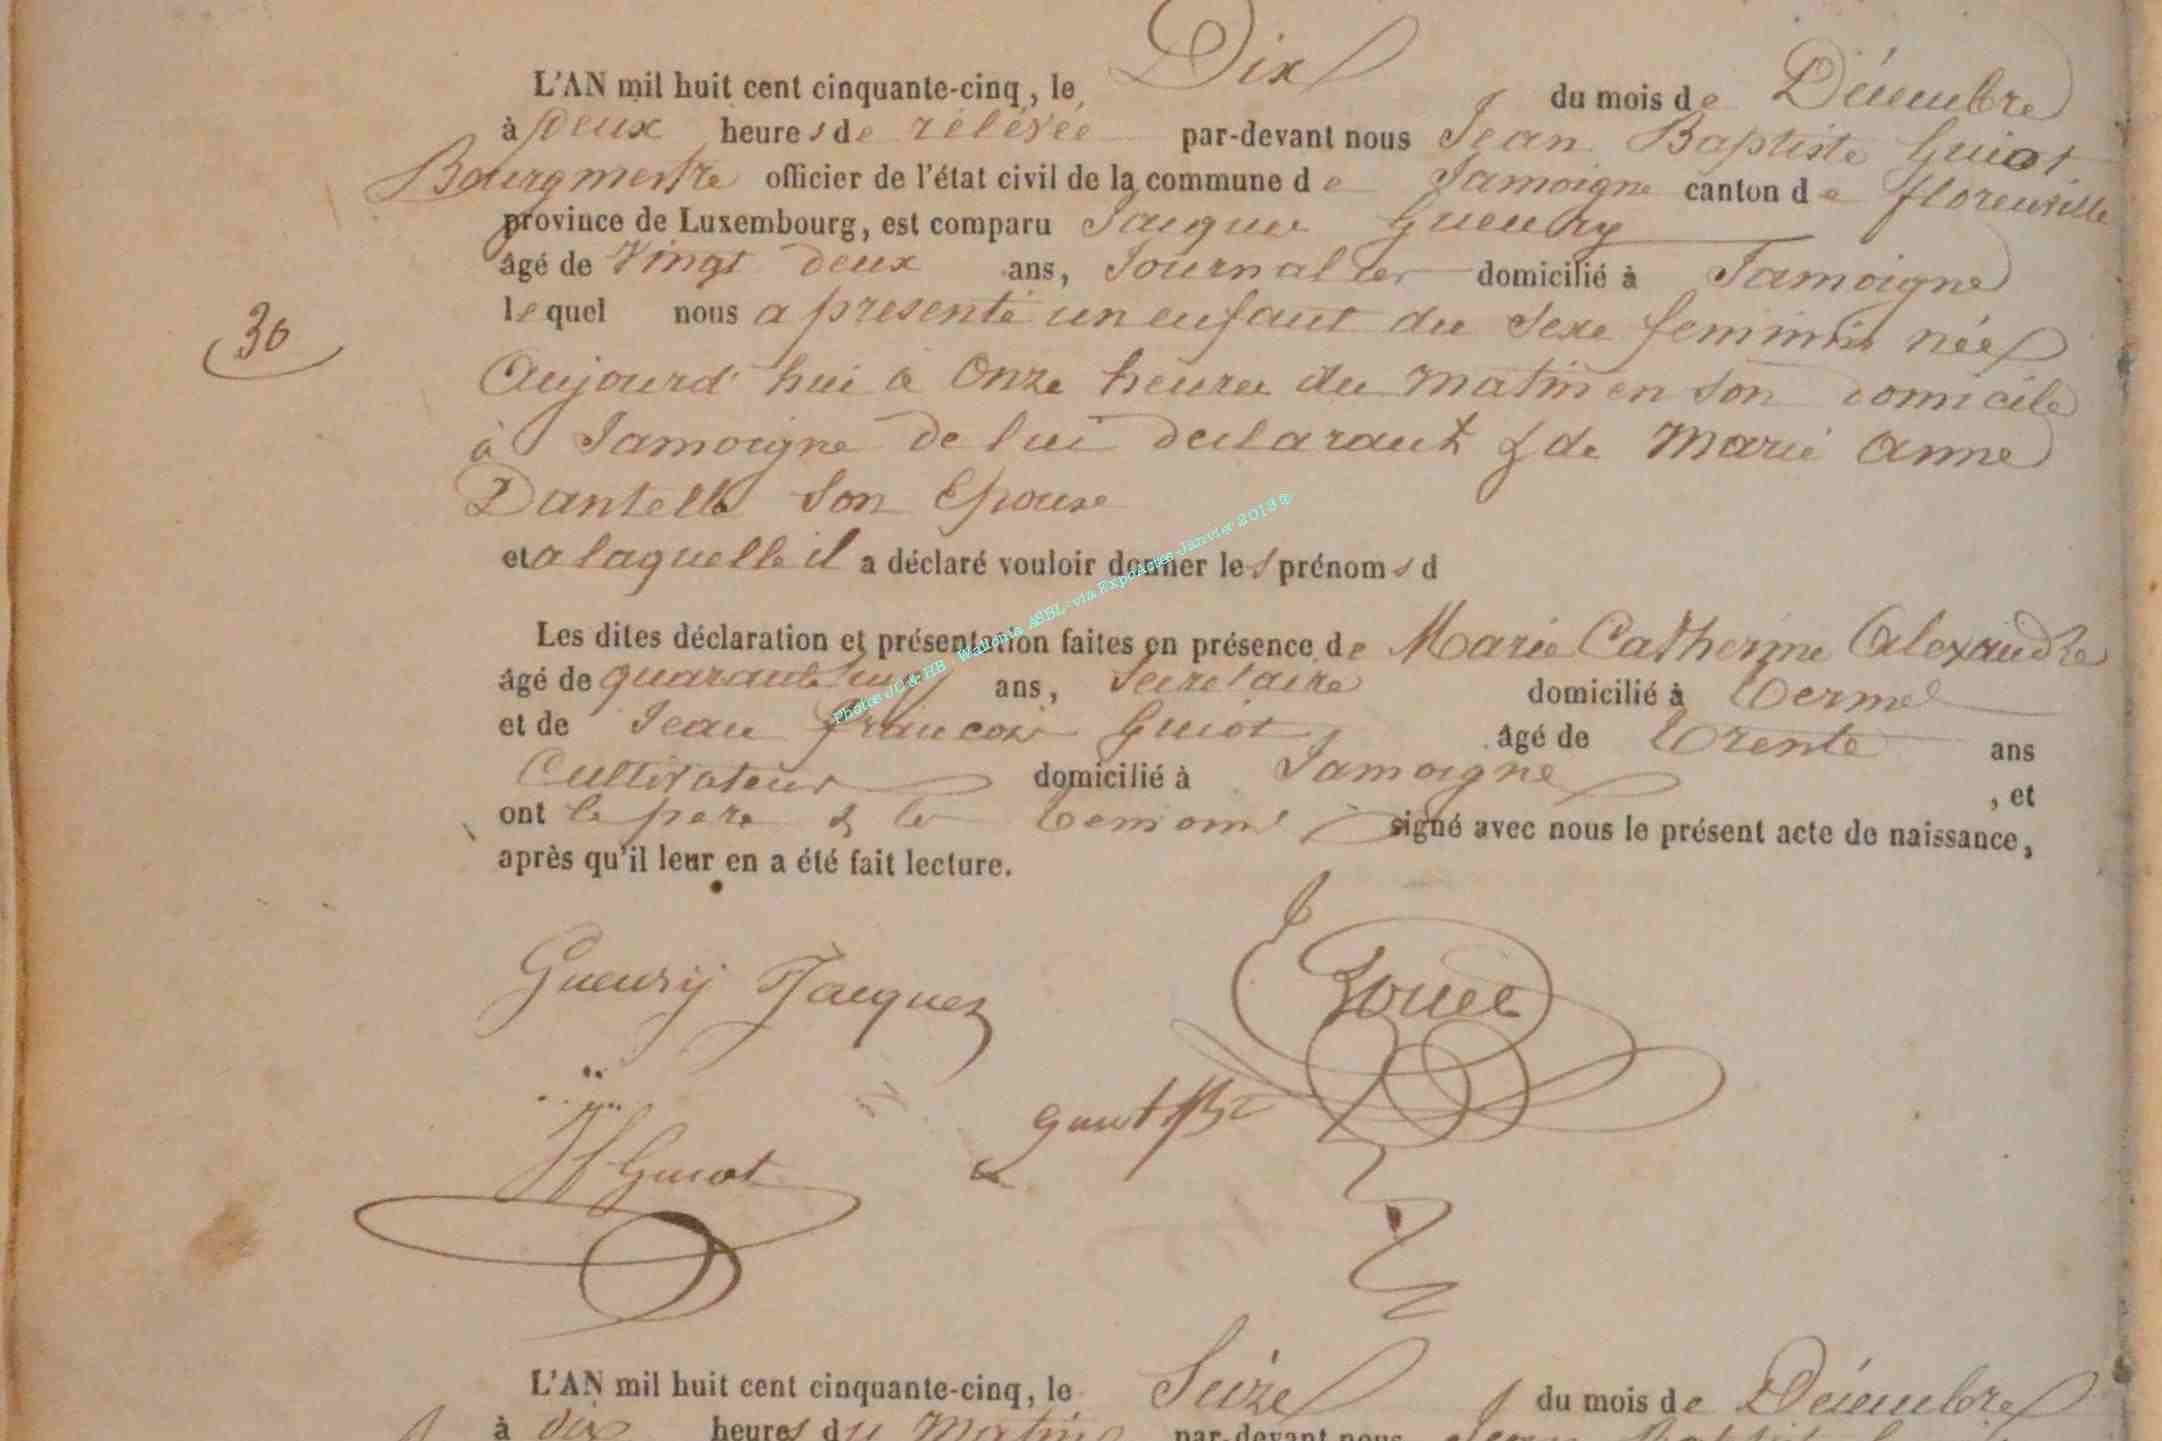 L'AN mil huit cent cinquante-cinq, le Dix du mois de Décembre
à Deux heures de rélévée par-devant nous Jean Baptiste Guiot
Bourgmestre officier de l'état civil de la commune de Jamoigne canton de florenville
province de Luxembourg, est comparu Jacques Gueury
âgé de Vingt deux ans, Journalier domicilié à Jamoigne
lequel nous a présenté un enfant du Sexe feminin née
Aujourd'hui à Onze heures du matin en son domicile
à Jamoigne de lui declarant & de Marie Anne
Dantelle Son Epouse
et a laquelle il a déclaré vouloir donner les prénoms d
30
Les dites déclaration et présentation faites en présence de Marie Catherine Alexandre
âgé de quarante ans, Secretaire domicilié à Termes
et de Jean françois Guiot, âgé de trente ans
Cultivateur domicilié à Jamoigne, et
ont le père & les temoins signé avec nous le présent acte de naissance,
après qu'il leur en a été fait lecture.
Photos JC & HB - Wallonia ASBL - via ExpoActes Janvier 2013 ©
Gueurij Jacques
J
guiot JBte
Jf Guiot
L'AN mil huit cent cinquante-cinq, le Seize du mois de Décembre
à dix heures du Matin par-devant nous Jean Baptiste